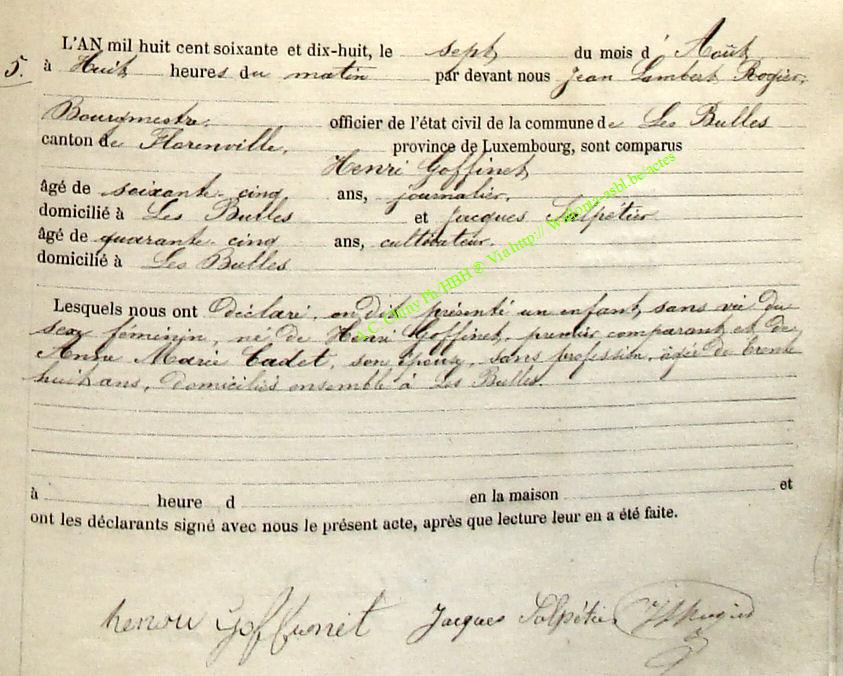 L'AN mil huit cent soixante et dix-huit, le sept du mois d' Août
5. à Huit heures du matin par devant nous Jean Lambert Rogier,
Bourgmestre, officier de l'état civil de la commune de Les Bulles
canton de Florenville, province de Luxembourg, sont comparus
Henri Goffinet
âgé de soixante-cinq ans, journalier,
domicilié à Les Bulles et Jacques Salpétier
âgé de quarante-cinq ans, cultivateur,
domicilié à Les Bulles
Lesquels nous ont déclaré, présenté un enfant sans vie du
sexe féminin, né de Henri Goffinet, premier comparant et de
Anne Marie Cadet, son épouse, sans profession, âgée de trente
huit ans, domiciliés ensemble à Les Bulles
à heure d en la maison et
ont les déclarants signé avec nous le présent acte, après que lecture leur en a été faite.
Goffinet Jacques Salpétier JLRogier
A.C. Chiny Ph. HBH ® Via http:// asbl.be actes